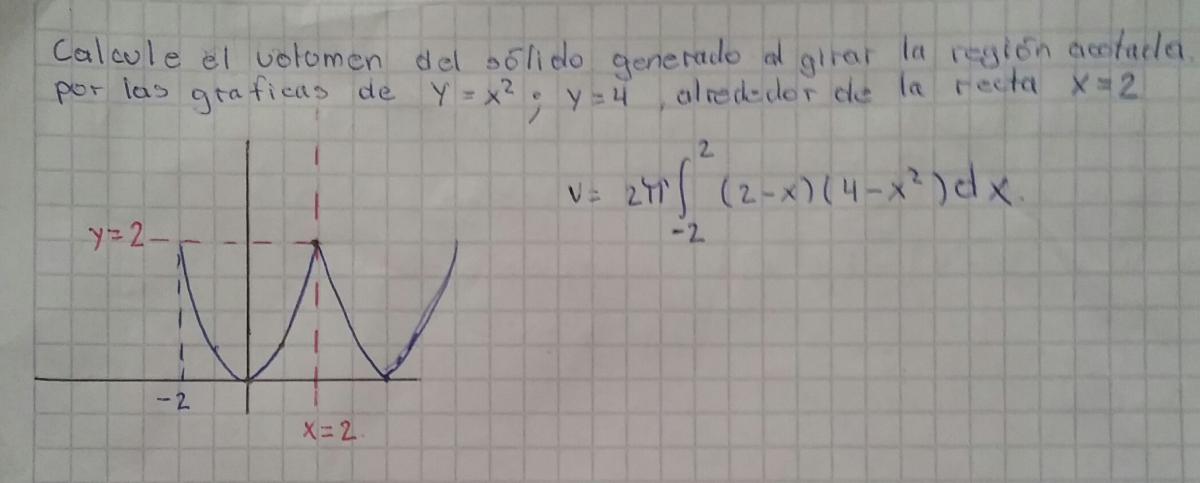 Calcule el volumen del sólido generado al girar la región acotada
por las graficas de y = x² ; y = 4 , alrededor de la recta x = 2
v = 2π∫₋₂² (2-x)(4-x²)dx.
y=2
-2
x=2.